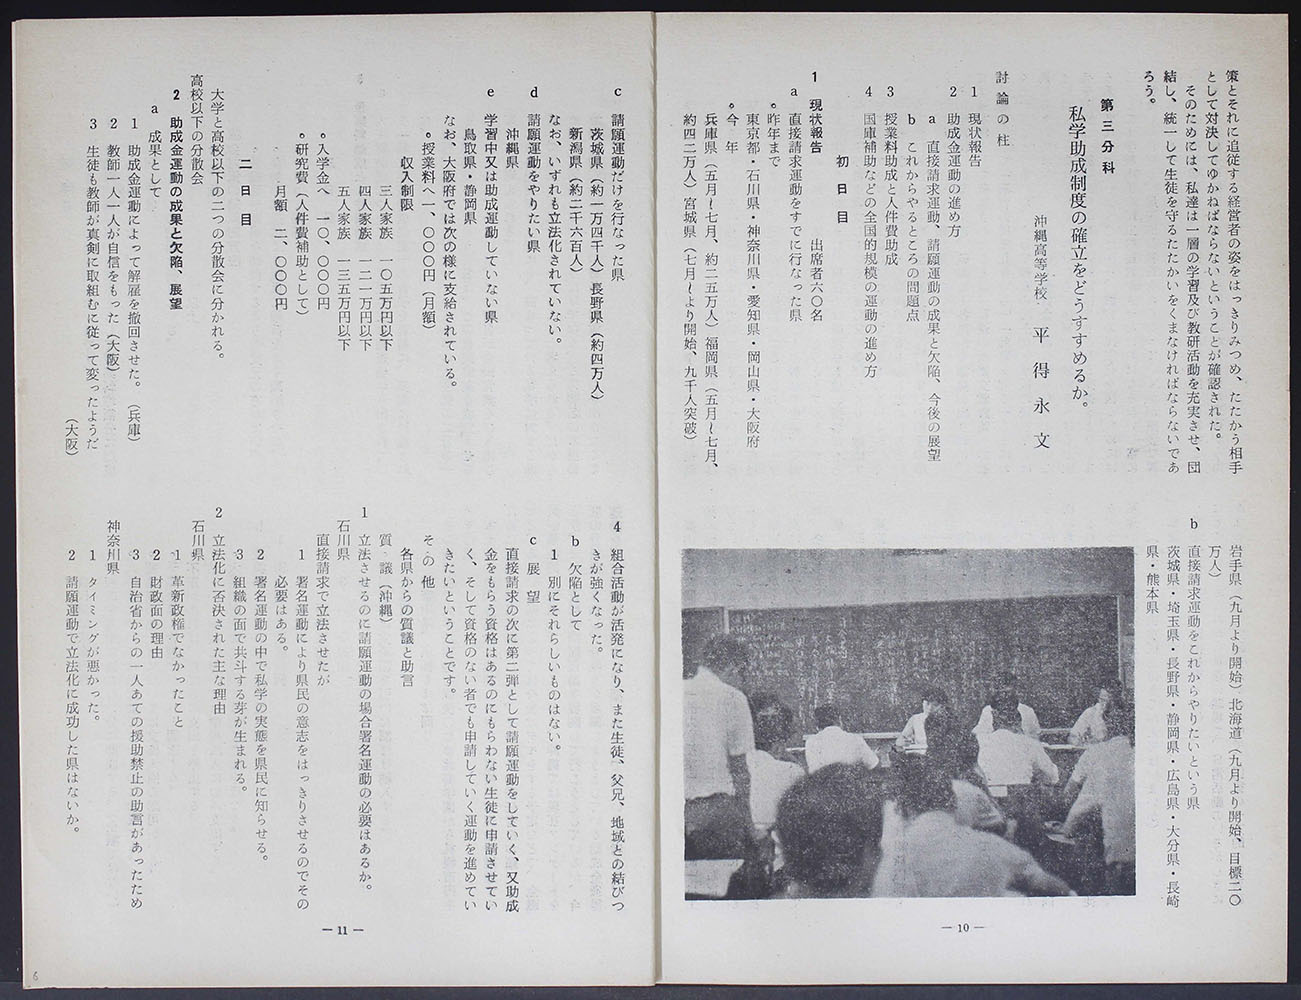 策とそれに追従する経営者の姿をはっきりみつめ、たたかう相手
として対決してゆかねばならないということが確認された。
そのためには、私達は一層の学習及び教研活動を充実させ、団
結し、統一して生徒を守るたたかいをくまなければならないであ
ろう。
第三分科
私学助成制度の確立をどうすすめるか。
沖縄高等学校 平得永文
討論の柱
1 現状報告
2 助成金運動の進め方
a 直接請求運動、請願運動の成果と欠陥、今後の展望
b これからやるところの問題点
3 授業料助成と人件費助成
4 国庫補助などの全国的規模の運動の進め方
初日目
1 現状報告 出席者六〇名
a 直接請求運動をすでに行なった県
・昨年まで
東京都・石川県・神奈川県・愛知県・岡山県・大阪府
・今年
兵庫県(五月〜七月、約二五万人)福岡県(五月〜七月、
約四二万人)宮城県(七月〜より開始、九千人突破)
岩手県(九月より開始)北海道(九月より開始、目標二〇
万人)
b 直接請求運動をこれからやりたいという県
茨城県・埼玉県・長野県・静岡県・広島県・大分県・長崎
県・熊本県
— 10 —
c 請願運動だけを行なった県
茨城県(約一万四千人)長野県(約四万人)
新潟県(約二千六百人)
なお、いずれも立法化されていない。
d 請願運動をやりたい県
沖縄県
e 学習中又は助成運動していない県
鳥取県・静岡県
なお、大阪府では次の様に支給されている。
・授業料へ一、〇〇〇円(月額)
収入制限
三人家族 一〇五万円以下
四人家族 一二一万円以下
五人家族 一三五万円以下
・入学金へ 一〇、〇〇〇円
・研究費(人件費補助として)
月額 二、〇〇〇円
二日目
大学と高校以下の二つの分散会に分かれる。
高校以下の分散会
2 助成金運動の成果と欠陥、展望
a 成果として
1 助成金運動によって解雇を撤回させた。(兵庫)
2 教師一人一人が自信をもった(大阪)
3 生徒も教師が真剣に取組むに従って変ったようだ
(大阪)
4 組合活動が活発になり、また生徒、父兄、地域との結びつ
きが強くなった。
b 欠陥として
1 別にそれらしいものはない。
c 展望
直接請求の次に第二弾として請願運動をしていく、又助成
金をもらう資格はあるのにもらわない生徒に申請させてい
く、そして資格のない者でも申請していく運動を進めてい
きたいということです。
その他
各県からの質議と助言
質議(沖縄)
1 立法させるのに請願運動の場合署名運動の必要はあるか。
石川県
直接請求で立法させたが
1 署名運動により県民の意志をはっきりさせるのでその
必要はある。
2 署名運動の中で私学の実態を県民に知らせる。
3 組織の面で共斗する芽が生まれる。
2 立法化に否決された主な理由
石川県
1 革新政権でなかったこと
2 財政面の理由
3 自治省からの一人あての援助禁止の助言があったため
神奈川県
1 タイミングが悪かった。
2 請願運動で立法化に成功した県はないか。
— 11 —
6